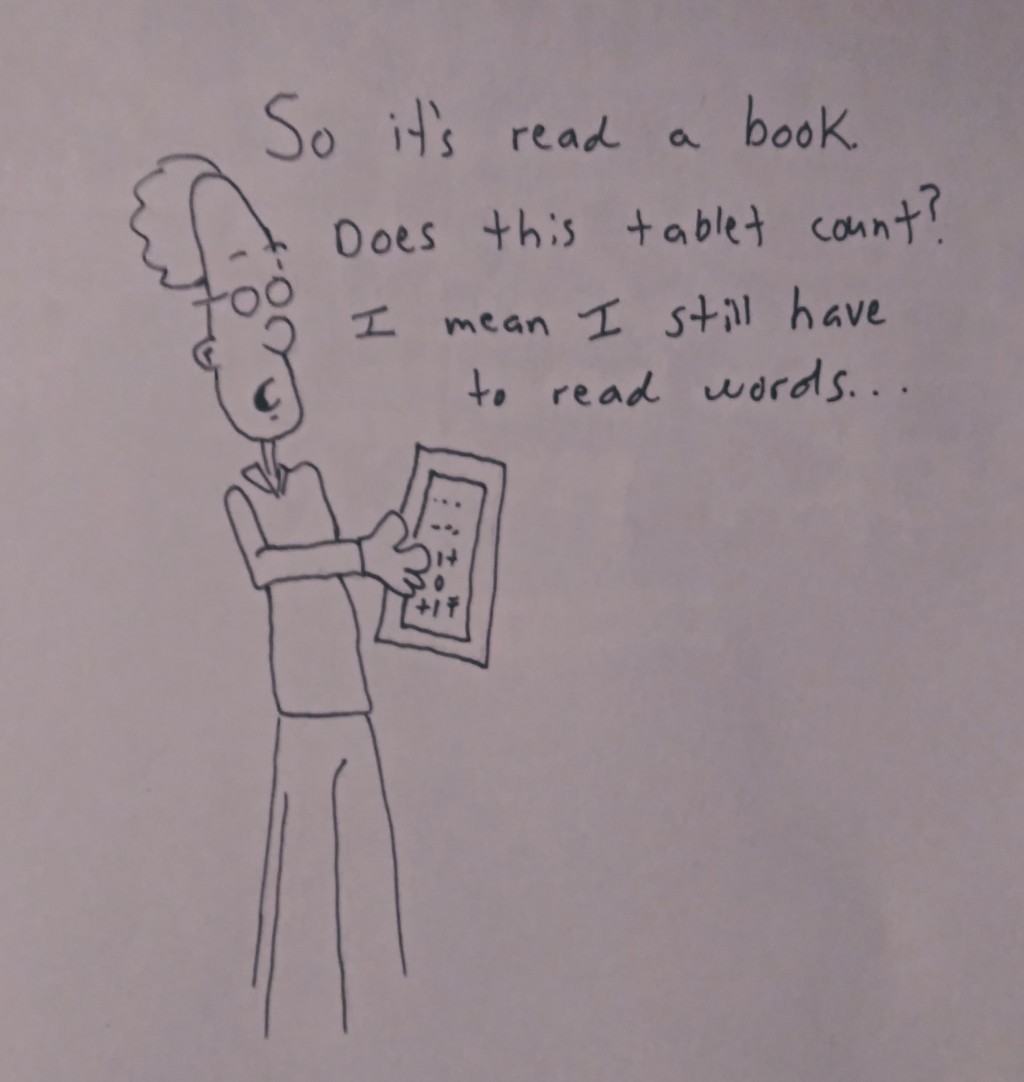 So it's read a book.
Does this tablet count?
I mean I still have
to read words...